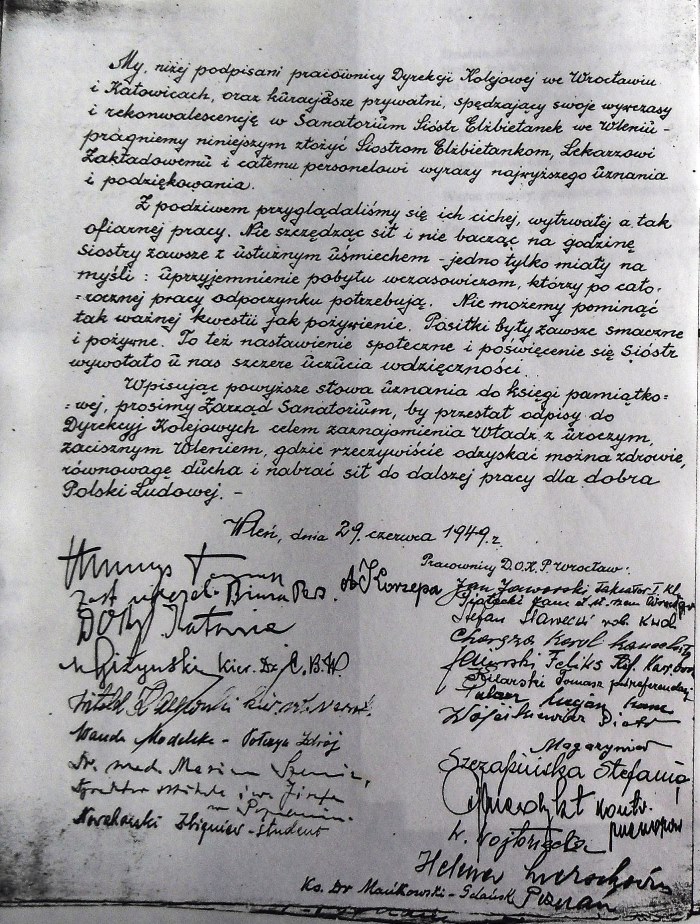 My, niżej podpisani pracownicy Dyrekcji Kolejowej we Wrocławiu
i Katowicach, oraz kuracjusze prywatni, spędzający swoje wywczasy
i rekonwalescencję w Sanatorium Sióstr Elżbietanek we Wleniu -
pragniemy niniejszym złożyć Siostrom Elżbietankom, Lekarzowi
Zakładowemu i całemu personelowi wyrazy najwyższego uznania
i podziękowania.
Z podziwem przyglądaliśmy się ich cichej, wytrwałej a tak
ofiarnej pracy. Nie szczędząc sił i nie bacząc na godzinę
Siostry zawsze z usłużnym uśmiechem - jedno tylko miały na
myśli : uprzyjemnienie pobytu wczasowiczom, którzy po cało=
=rocznej pracy odpoczynku potrzebują. Nie możemy pominąć
tak ważnej kwestii jak pożywienie. Posiłki były zawsze smaczne
i pożywne. To też nastawienie społeczne i poświęcenie się Sióstr
wywołało u nas szczere uczucia wdzięczności.
Wpisując powyższe słowa uznania do księgi pamiątko=
=wej, prosimy Zarząd Sanatorium, by przesłał odpisy do
Dyrekcyj Kolejowych celem zaznajomienia Władz z uroczym,
zacisznym Wleniem, gdzie rzeczywiście odzyskać można zdrowie,
równowagę ducha i nabrać sił do dalszej pracy dla dobra
Polski Ludowej. -
Wleń, dnia 29 czerwca 1949 r.
Pracownicy D.O.K.P. Wrocław:
A. Korzepa
Jan Jaworski
Stefan
Karol
Feliks
Tomasz
Lucjan
Wójcikiewicz Piotr
Magazynier
Szczapińska Stefania
Helena
Poznań
Giżyński Kier.
Witold
Wanda Modelska -
Dr. med. Marian
Nowakowski Zbigniew - student
Ks. Dr Mańkowski - Gdańsk